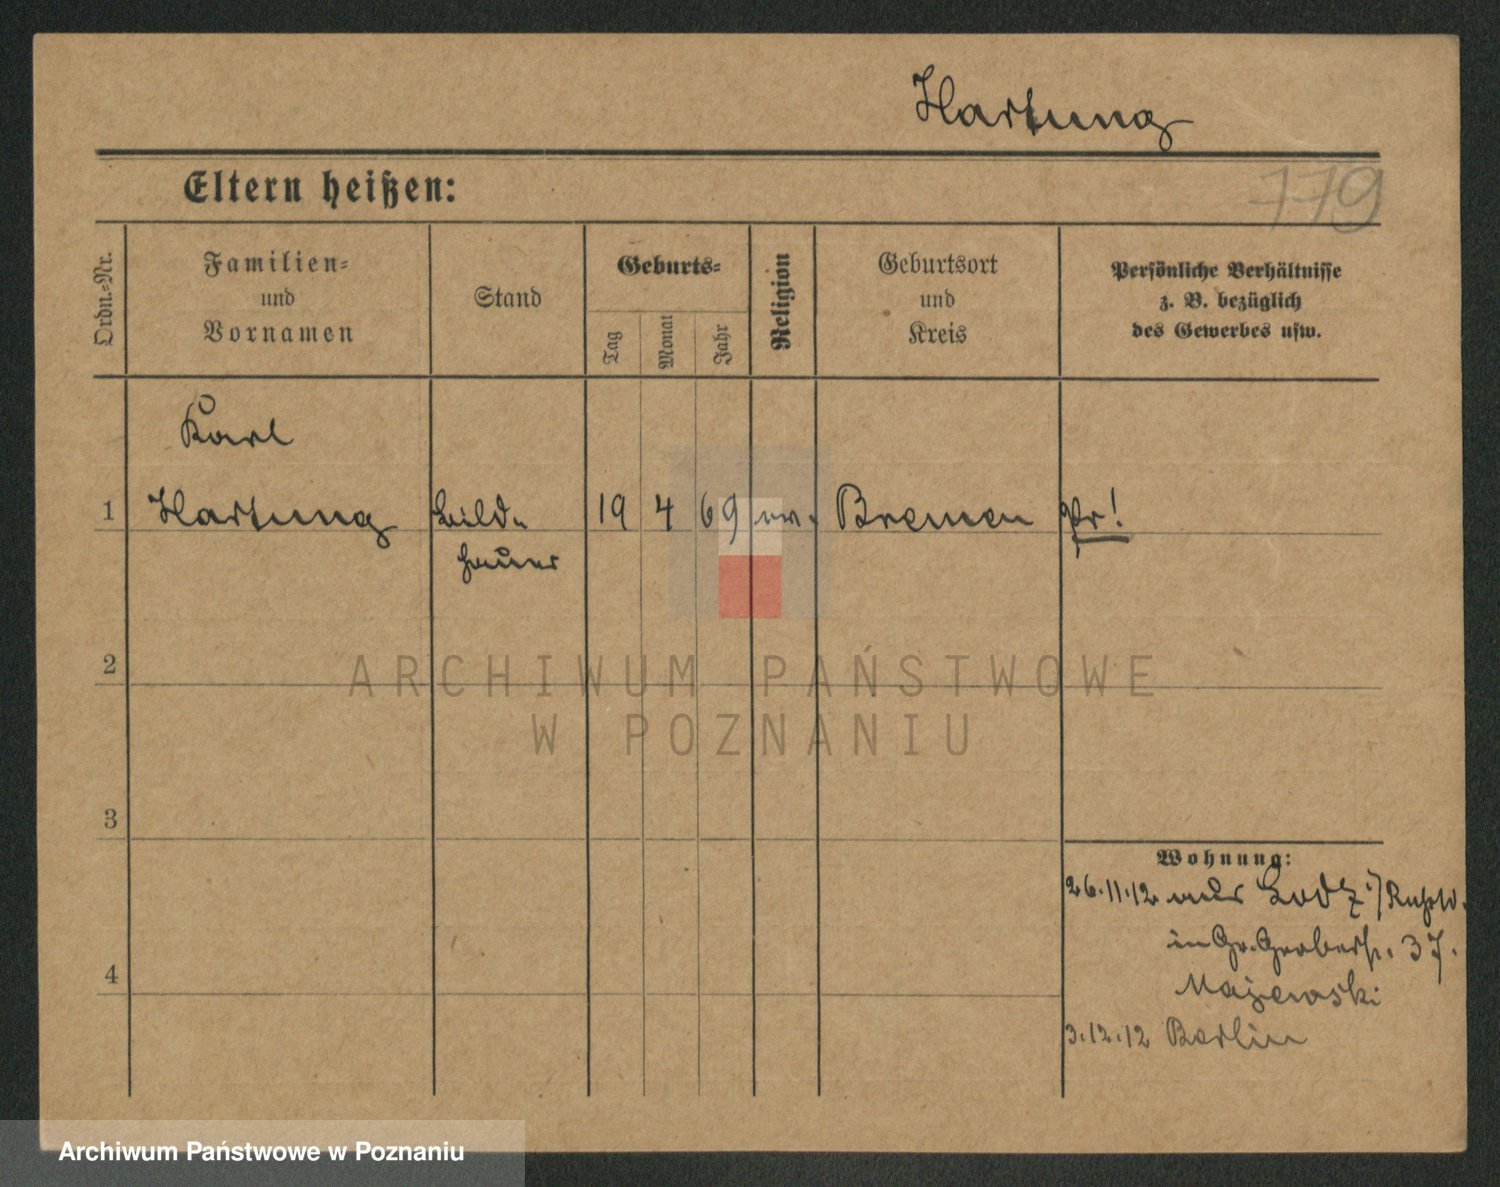 Hartung
Eltern heißen:
779
Ordn.-Nr.
Familien-
und
Vornamen
Stand
Geburts-
Tag
Monat
Jahr
Religion
Geburtsort
und
Kreis
Persönliche Verhältnisse
z. B. bezüglich
des Gewerbes usw.
Karl
1 Hartung Bild- 19 4 69 ev. Bremen Pr!
hauer
2
ARCHIWUM PAŃSTWOWE
W POZNANIU
3
Wohnung:
26.11.12 aus Lodz i/Russld.
in Gr. Gerberstr. 37.
4
Majewski
3.12.12 Berlin
Archiwum Państwowe w Poznaniu